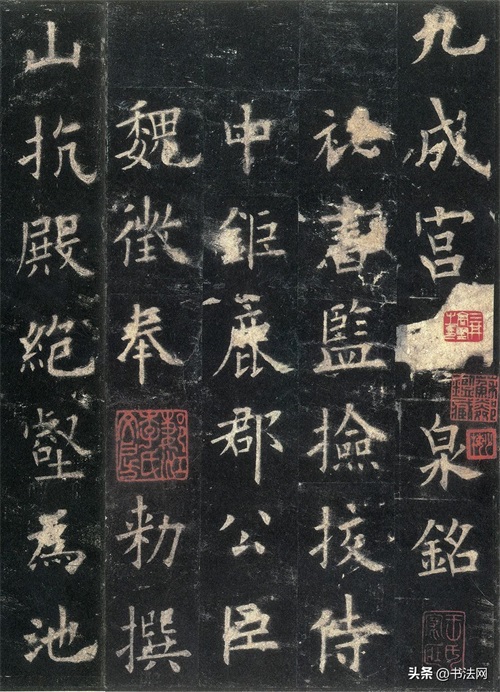 九成宮泉銘
祕書監撿挍侍
中鉅鹿郡公臣
魏徵奉勑撰
山抗殿絕壑為池
头条 @书法网